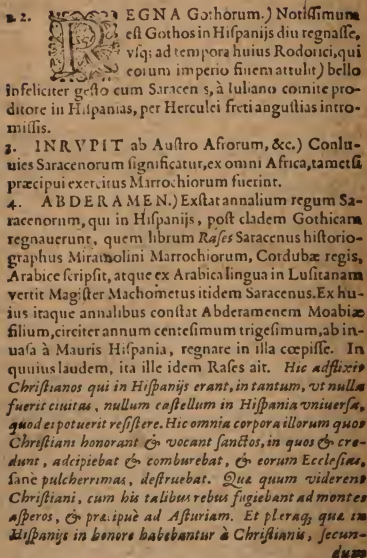 2. REGNA Gothorum.) Notissimum
est Gothos in Hispanijs diu regnasse,
vsq; ad tempora huius Rodorici, qui
eorum imperio finem attulit) bello
infeliciter gesto cum Saracen s, à Iuliano comite pro-
ditore in Hispanias, per Herculei freti angustias intro-
missis.
3. INRVPIT ab Austro Afrorum, &c.) Conlu-
uies Saracenorum significatur, ex omni Africa, tametsi
præcipui exercitus Marrochiorum fuerint.
4. ABDERAMEN.) Exstat annalium regum Sa-
racenorum, qui in Hispanijs, post cladem Gothicam
regnauerunt, quem librum Rases Saracenus historio-
graphus Miramolini Marrochiorum, Cordubæ regis,
Arabice scripsit, atque ex Arabica lingua in Lusitanam
vertit Magister Machometus itidem Saracenus. Ex hu-
ius itaque annalibus constat Abderamenem Moabiæ
filium, circiter annum centesimum trigesimum, ab in-
uasa à Mauris Hispania, regnare in illa cœpisse. In
quuius laudem, ita ille idem Rases ait. Hic adflixit
Christianos qui in Hispanijs erant, in tantum, vt nulla
fuerit ciuitas, nullum castellum in Hispania vniuersa,
quod ei potuerit resistere. Hic omnia corpora illorum quos
Christiani honorant & vocant sanctos, in quos & cre-
dunt, adcipiebat & comburebat, & eorum Ecclesias,
sane pulcherrimas, destruebat. Quæ quum viderent
Christiani, cum his talibus rebus fugiebant ad montes
asperos, & præcipuè ad Asturiam. Et pleraq, quæ in
Hispanijs in honore habebantur à Christianis, secun-
dum